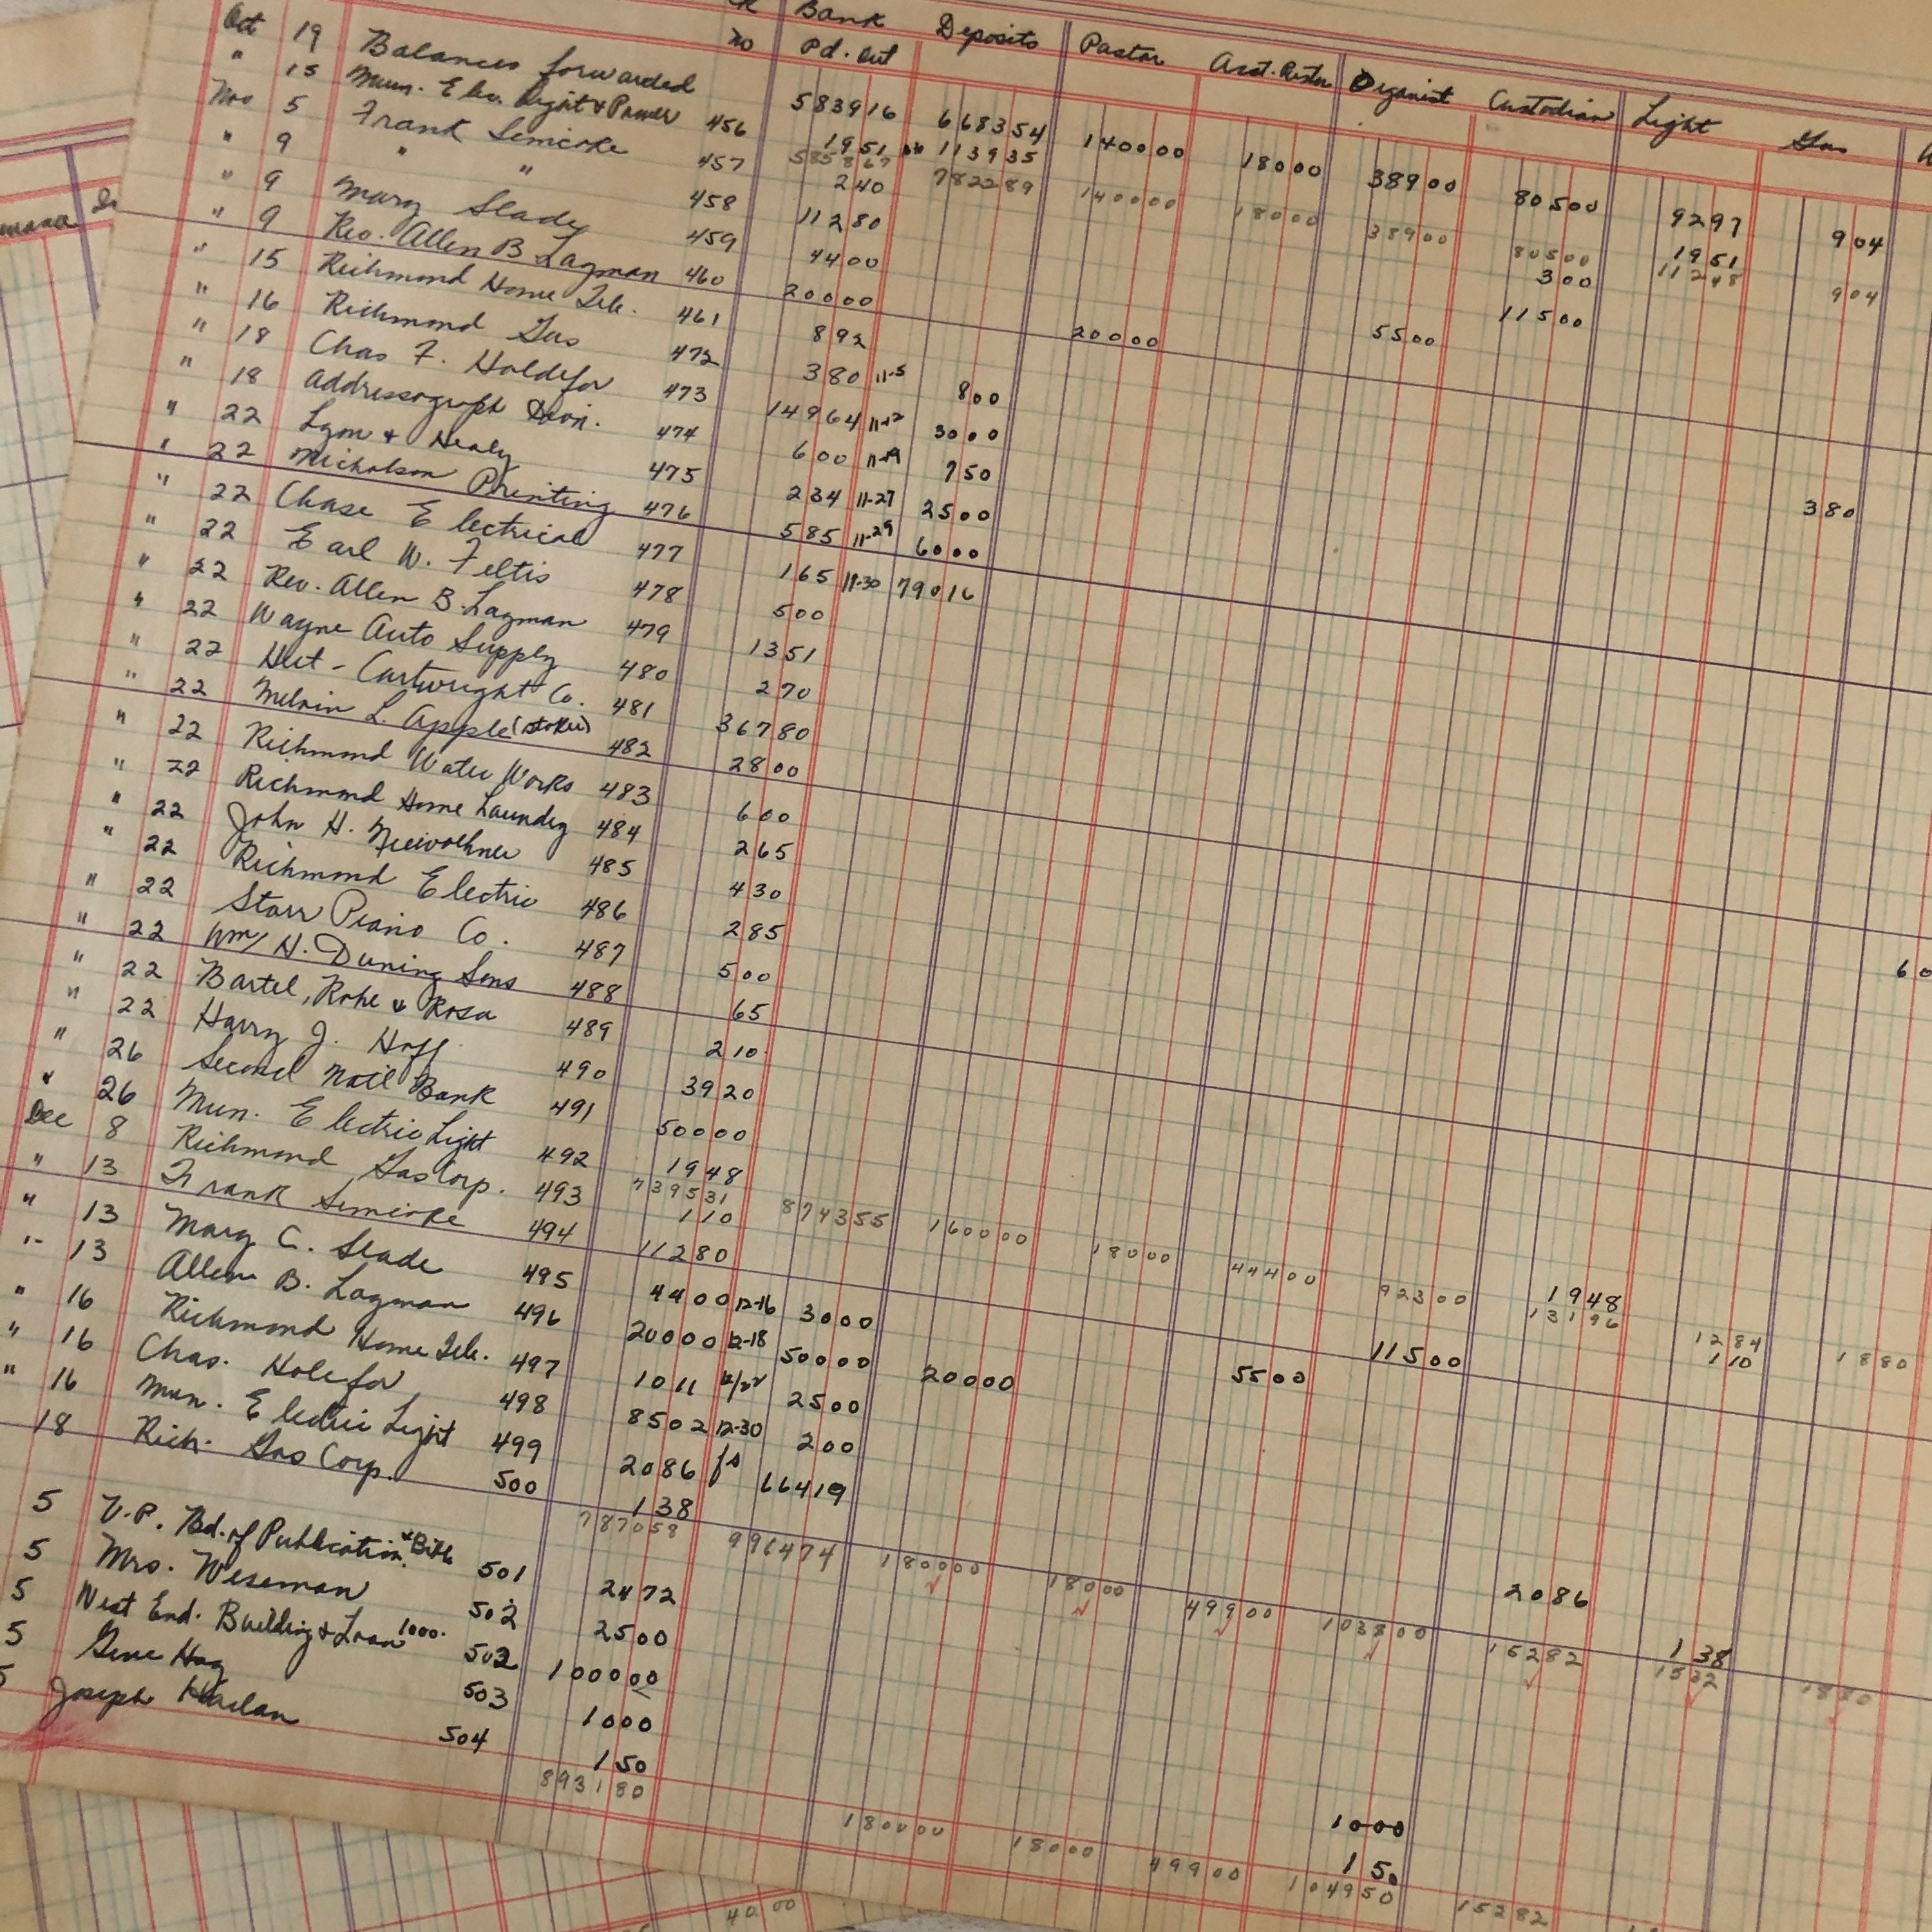 Bank Deposits Pastor Asst. Pastor Organist Custodian Light Gas
No Pd. out
Oct 19 Balances forwarded 583916 668354 140000 18000 38900 80500 9297 904
" 15 Mun. Elec. Light & Power 456 1951 113935 1951
585867 782289 140000 18000 38900 80500 11248 904
Nov 5 Frank Semioke 457 240 300
" 9 " " 458 11280 11500
" 9 Mary Slade 459 4400 5500
" 9 Rev. Allen B Lagman 460 20000 20000
" 15 Richmond Home Tele. 461 892
" 16 Richmond Gas 472 380 11-5 800 380
" 18 Chas F. Holdefor 473 14964 11-12 3000
" 18 Addressograph Divn. 474 600 11-19 750
" 22 Lyon & Healy 475 234 11-27 2500
" 22 Nicholson Printing 476 585 11-29 6000
" 22 Chase Electrical 477 165 11-30 79016
" 22 Earl W. Feltis 478 500
" 22 Rev. Allen B. Lagman 479 1351
" 22 Wayne Auto Supply 480 270
" 22 Hut-Cartwright Co. 481 36780
" 22 Melvin L. Apple (Stoker) 482 2800
" 22 Richmond Water Works 483 600 60
" 22 Richmond Home Laundry 484 265
" 22 John H. Niewoehner 485 430
" 22 Richmond Electric 486 285
" 22 Starr Piano Co. 487 500
" 22 Wm H. Duning Sons 488 65
" 22 Bartel, Rohe & Rosa 489 210
" 22 Harry J. Hoff 490 3920
" 26 Second Natl Bank 491 50000
" 26 Mun. Electric Light 492 1948 1948
739531 874355 160000 18000 44400 92300 13196 1284 1880
Dec 8 Richmond Gas Corp. 493 110 110
" 13 Frank Semioke 494 11280 11500
" 13 Mary C. Slade 495 4400 12-16 3000 5500
" 13 Allen B. Lagman 496 20000 12-18 50000 20000
" 16 Richmond Home Tele. 497 1011 12/22 2500
" 16 Chas. Holefor 498 8502 12-30 200
" 16 Mun. Electric Light 499 2086 66419 2086
18 Rich. Gas Corp. 500 138 138
787058 996474 180000 18000 49900 103800 15282 1532 1880
5 U.P. Bd. of Publication & Bible 501 2472
5 Mrs. Weseman 502 2500
5 West End. Building & Loan 1000. 502 100000
5 Gene Hag 503 1000 1000
5 Joseph Harlan 504 150 150
893180 180000 18000 49900 104950 15282
4000